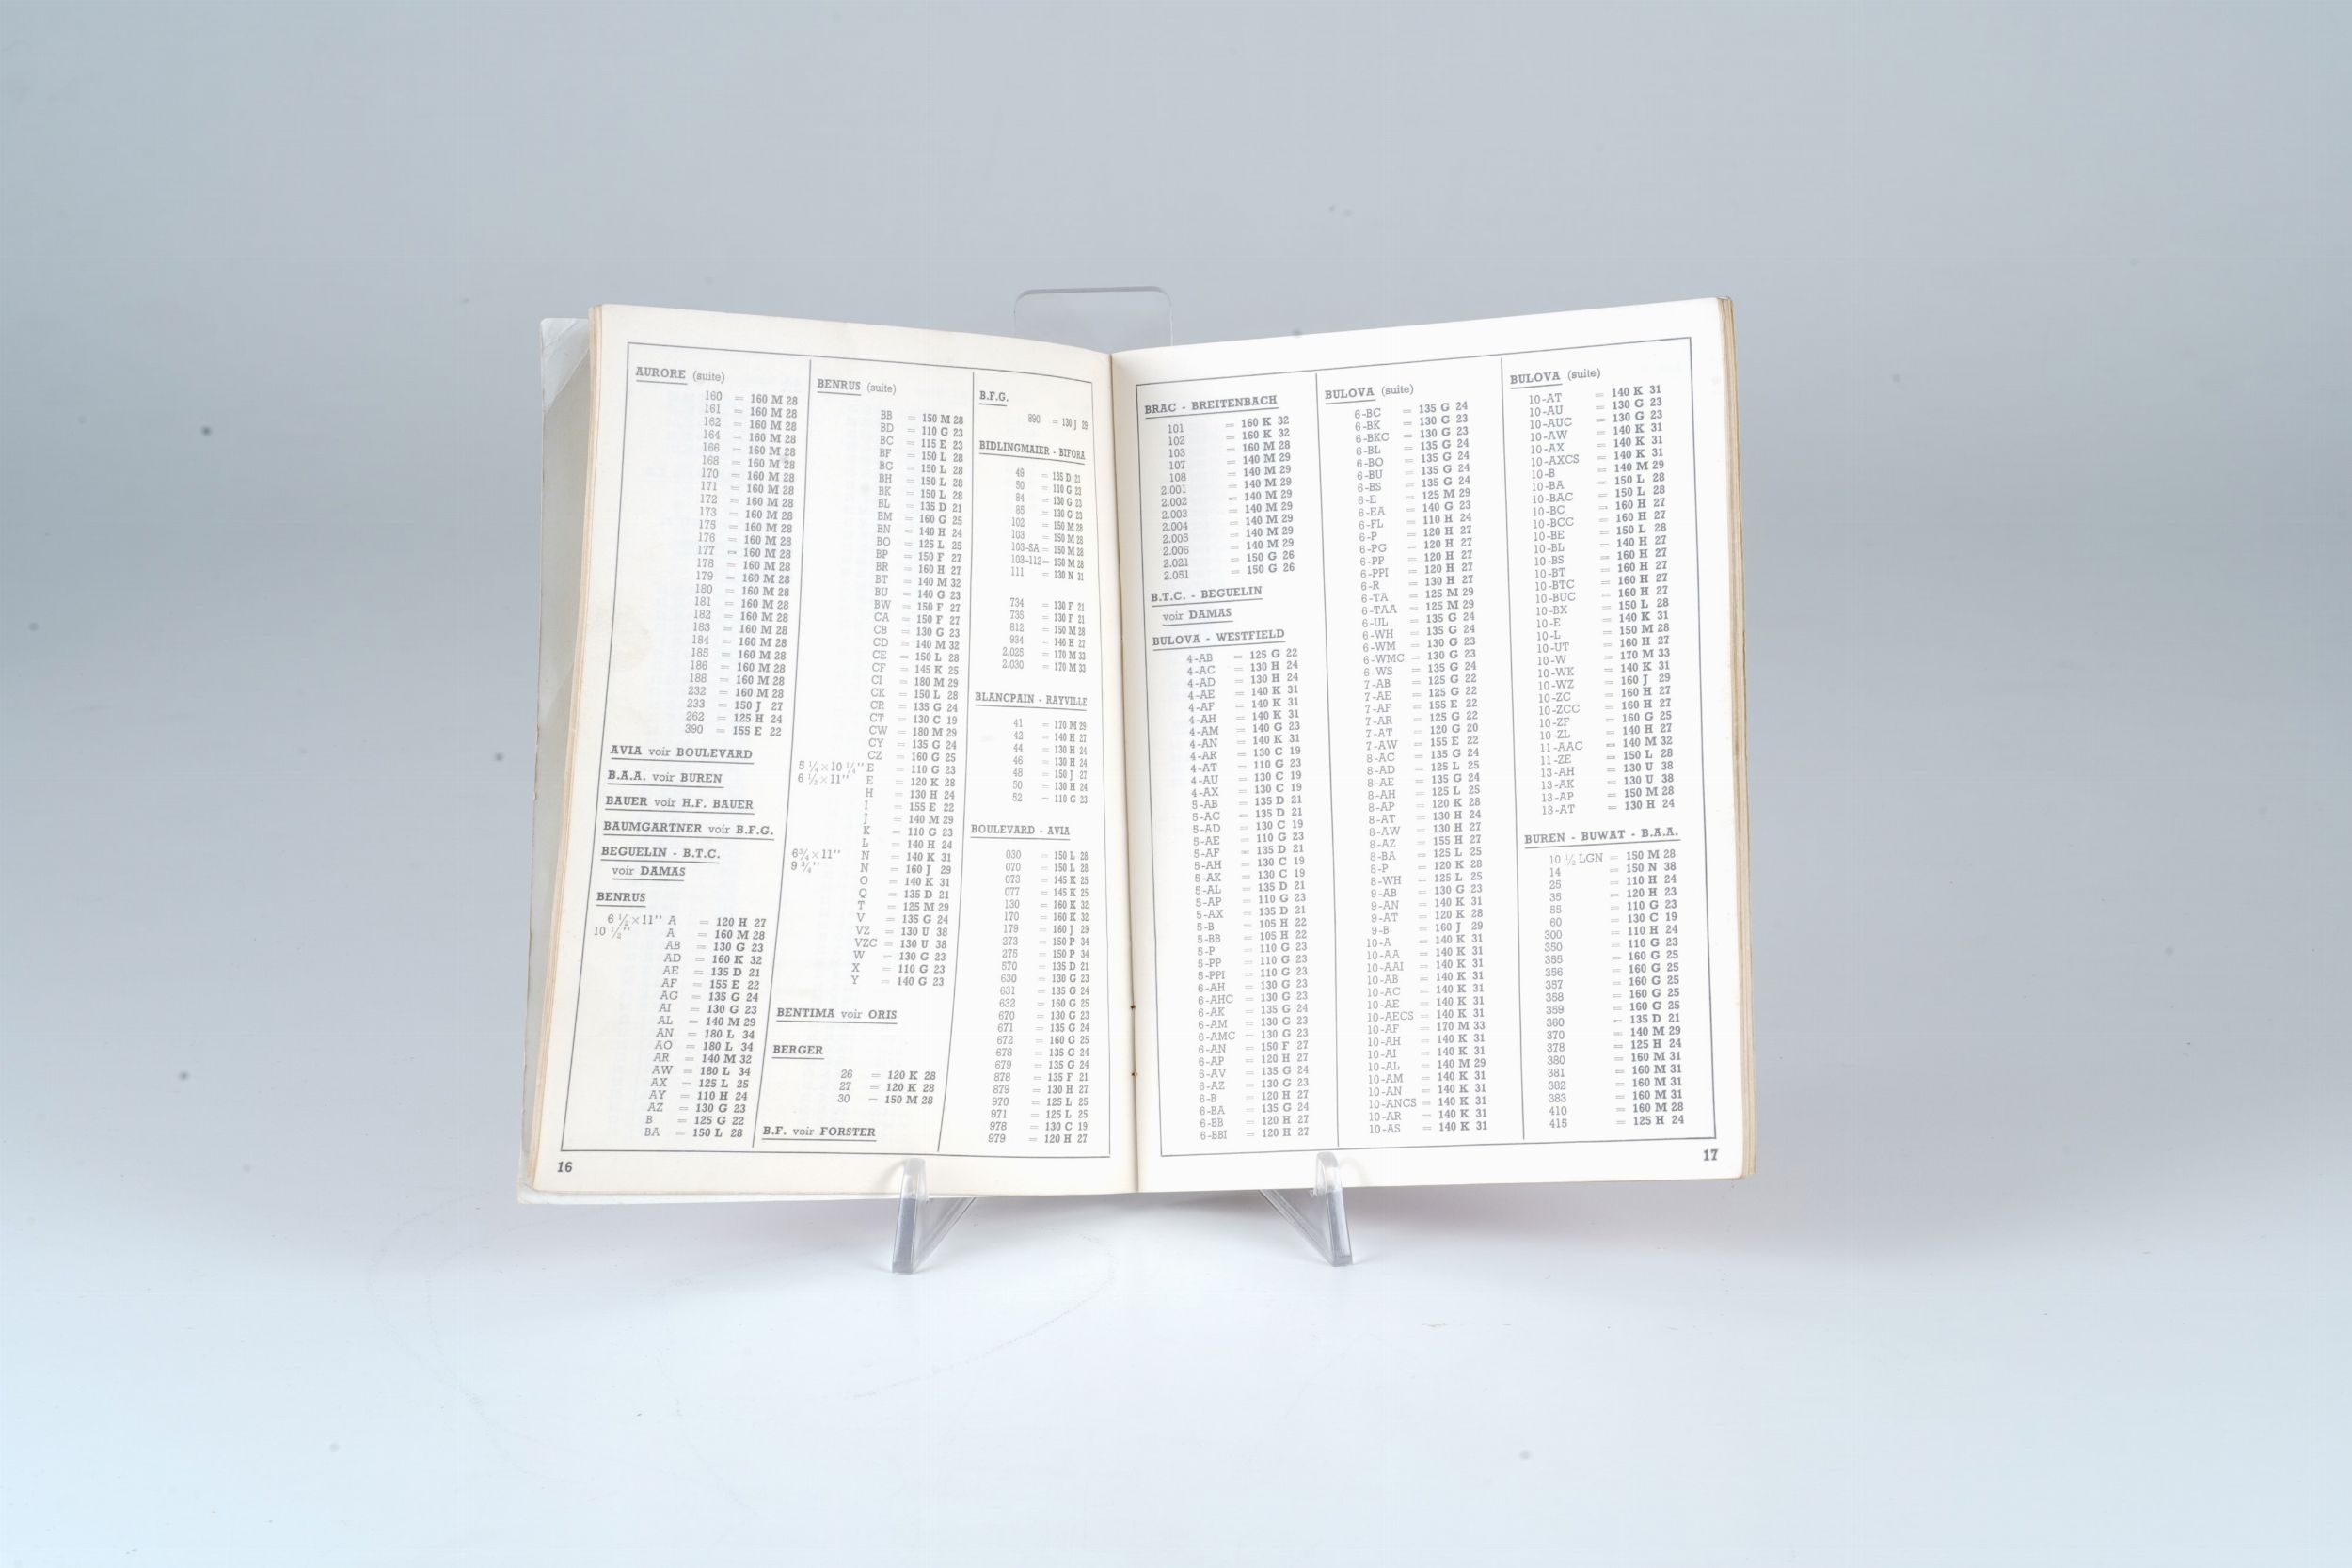 AURORE (suite)
160 = 160 M 28
161 = 160 M 28
162 = 160 M 28
164 = 160 M 28
166 = 160 M 28
168 = 160 M 28
170 = 160 M 28
171 = 160 M 28
172 = 160 M 28
173 = 160 M 28
175 = 160 M 28
176 = 160 M 28
177 = 160 M 28
178 = 160 M 28
179 = 160 M 28
180 = 160 M 28
181 = 160 M 28
182 = 160 M 28
183 = 160 M 28
184 = 160 M 28
185 = 160 M 28
186 = 160 M 28
188 = 160 M 28
232 = 160 M 28
233 = 150 J 27
262 = 125 H 24
390 = 155 E 22
AVIA voir BOULEVARD
B.A.A. voir BUREN
BAUER voir H.F. BAUER
BAUMGARTNER voir B.F.G.
BEGUELIN - B.T.C.
voir DAMAS
BENRUS
6 ½×11" A = 120 H 27
10 ½" A = 160 M 28
AB = 130 G 23
AD = 160 K 32
AE = 135 D 21
AF = 155 E 22
AG = 135 G 24
AI = 130 G 23
AL = 140 M 29
AN = 180 L 34
AO = 180 L 34
AR = 140 M 32
AW = 180 L 34
AX = 125 L 25
AY = 110 H 24
AZ = 130 G 23
B = 125 G 22
BA = 150 L 28
16
BENRUS (suite)
BB = 150 M 28
BD = 110 G 23
BC = 115 E 23
BF = 150 L 28
BG = 150 L 28
BH = 150 L 28
BK = 150 L 28
BL = 135 D 21
BM = 160 G 25
BN = 140 H 24
BO = 125 L 25
BP = 150 F 27
BR = 160 H 27
BT = 140 M 32
BU = 140 G 23
BW = 150 F 27
CA = 150 F 27
CB = 130 G 23
CD = 140 M 32
CE = 150 L 28
CF = 145 K 25
CI = 180 M 29
CK = 150 L 28
CR = 135 G 24
CT = 130 C 19
CW = 180 M 29
CY = 135 G 24
CZ = 160 G 25
5 ¼×10 ¼" E = 110 G 23
6 ½×11" E = 120 K 28
H = 130 H 24
I = 155 E 22
J = 140 M 29
K = 110 G 23
L = 140 H 24
6¾×11" N = 140 K 31
9 ¾" N = 160 J 29
O = 140 K 31
Q = 135 D 21
T = 125 M 29
V = 135 G 24
VZ = 130 U 38
VZC = 130 U 38
W = 130 G 23
X = 110 G 23
Y = 140 G 23
BENTIMA voir ORIS
BERGER
26 = 120 K 28
27 = 120 K 28
30 = 150 M 28
B.F. voir FORSTER
B.F.G.
890 = 130 J 29
BIDLINGMAIER - BIFORA
49 = 135 D 21
50 = 110 G 23
84 = 130 G 23
85 = 130 G 23
102 = 150 M 28
103 = 150 M 28
103-SA = 150 M 28
103-112 = 150 M 28
111 = 130 N 31
734 = 130 F 21
735 = 130 F 21
812 = 150 M 28
934 = 140 H 27
2.025 = 170 M 33
2.030 = 170 M 33
BLANCPAIN - RAYVILLE
41 = 170 M 29
42 = 140 H 27
44 = 130 H 24
46 = 130 H 24
48 = 150 J 27
50 = 130 H 24
52 = 110 G 23
BOULEVARD - AVIA
030 = 150 L 28
070 = 150 L 28
073 = 145 K 25
077 = 145 K 25
130 = 160 K 32
170 = 160 K 32
179 = 160 J 29
273 = 150 P 34
275 = 150 P 34
570 = 135 D 21
630 = 130 G 23
631 = 135 G 24
632 = 160 G 25
670 = 130 G 23
671 = 135 G 24
672 = 160 G 25
678 = 135 G 24
679 = 135 G 24
878 = 135 F 21
879 = 130 H 27
970 = 125 L 25
971 = 125 L 25
978 = 130 C 19
979 = 120 H 27
BRAC - BREITENBACH
101 = 160 K 32
102 = 160 K 32
103 = 160 M 28
107 = 140 M 29
108 = 140 M 29
2.001 = 140 M 29
2.002 = 140 M 29
2.003 = 140 M 29
2.004 = 140 M 29
2.005 = 140 M 29
2.006 = 140 M 29
2.021 = 150 G 26
2.051 = 150 G 26
B.T.C. - BEGUELIN
voir DAMAS
BULOVA - WESTFIELD
4-AB = 125 G 22
4-AC = 130 H 24
4-AD = 130 H 24
4-AE = 140 K 31
4-AF = 140 K 31
4-AH = 140 K 31
4-AM = 140 G 23
4-AN = 140 K 31
4-AR = 130 C 19
4-AT = 110 G 23
4-AU = 130 C 19
4-AX = 130 C 19
5-AB = 135 D 21
5-AC = 135 D 21
5-AD = 130 C 19
5-AE = 110 G 23
5-AF = 135 D 21
5-AH = 130 C 19
5-AK = 130 C 19
5-AL = 135 D 21
5-AP = 110 G 23
5-AX = 135 D 21
5-B = 105 H 22
5-BB = 105 H 22
5-P = 110 G 23
5-PP = 110 G 23
5-PPI = 110 G 23
6-AH = 130 G 23
6-AHC = 130 G 23
6-AK = 135 G 24
6-AM = 130 G 23
6-AMC = 130 G 23
6-AN = 150 F 27
6-AP = 120 H 27
6-AV = 135 G 24
6-AZ = 130 G 23
6-B = 120 H 27
6-BA = 135 G 24
6-BB = 120 H 27
6-BBI = 120 H 27
BULOVA (suite)
6-BC = 135 G 24
6-BK = 130 G 23
6-BKC = 130 G 23
6-BL = 135 G 24
6-BO = 135 G 24
6-BU = 135 G 24
6-BS = 135 G 24
6-E = 125 M 29
6-EA = 140 G 23
6-FL = 110 H 24
6-P = 120 H 27
6-PG = 120 H 27
6-PP = 120 H 27
6-PPI = 120 H 27
6-R = 130 H 27
6-TA = 125 M 29
6-TAA = 125 M 29
6-UL = 135 G 24
6-WH = 135 G 24
6-WM = 130 G 23
6-WMC = 130 G 23
6-WS = 135 G 24
7-AB = 125 G 22
7-AE = 125 G 22
7-AF = 155 E 22
7-AR = 125 G 22
7-AT = 120 G 20
7-AW = 155 E 22
8-AC = 135 G 24
8-AD = 125 L 25
8-AE = 135 G 24
8-AH = 125 L 25
8-AP = 120 K 28
8-AT = 130 H 24
8-AW = 130 H 27
8-AZ = 155 H 27
8-BA = 125 L 25
8-P = 120 K 28
8-WH = 125 L 25
9-AB = 130 G 23
9-AN = 140 K 31
9-AT = 120 K 28
9-B = 160 J 29
10-A = 140 K 31
10-AA = 140 K 31
10-AAI = 140 K 31
10-AB = 140 K 31
10-AC = 140 K 31
10-AE = 140 K 31
10-AECS = 140 K 31
10-AF = 170 M 33
10-AH = 140 K 31
10-AI = 140 K 31
10-AL = 140 M 29
10-AM = 140 K 31
10-AN = 140 K 31
10-ANCS = 140 K 31
10-AR = 140 K 31
10-AS = 140 K 31
BULOVA (suite)
10-AT = 140 K 31
10-AU = 130 G 23
10-AUC = 130 G 23
10-AW = 140 K 31
10-AX = 140 K 31
10-AXCS = 140 K 31
10-B = 140 M 29
10-BA = 150 L 28
10-BAC = 150 L 28
10-BC = 160 H 27
10-BCC = 160 H 27
10-BE = 150 L 28
10-BL = 140 H 27
10-BS = 160 H 27
10-BT = 160 H 27
10-BTC = 160 H 27
10-BUC = 160 H 27
10-BX = 150 L 28
10-E = 140 K 31
10-L = 150 M 28
10-UT = 160 H 27
10-W = 170 M 33
10-WK = 140 K 31
10-WZ = 160 J 29
10-ZC = 160 H 27
10-ZCC = 160 H 27
10-ZF = 160 G 25
10-ZL = 140 H 27
11-AAC = 140 M 32
11-ZE = 150 L 28
13-AH = 130 U 38
13-AK = 130 U 38
13-AP = 150 M 28
13-AT = 130 H 24
BUREN - BUWAT - B.A.A.
10 ½ LGN = 150 M 28
14 = 150 N 38
25 = 110 H 24
35 = 120 H 23
55 = 110 G 23
60 = 130 C 19
300 = 110 H 24
350 = 110 G 23
355 = 160 G 25
356 = 160 G 25
357 = 160 G 25
358 = 160 G 25
359 = 160 G 25
360 = 135 D 21
370 = 140 M 29
378 = 125 H 24
380 = 160 M 31
381 = 160 M 31
382 = 160 M 31
383 = 160 M 31
410 = 160 M 28
415 = 125 H 24
17